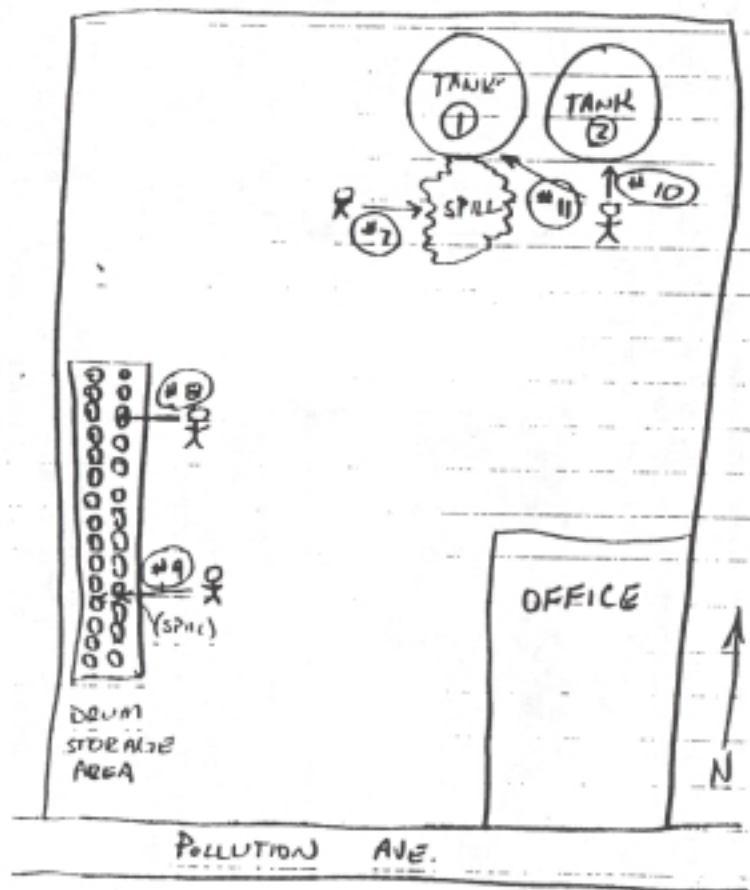 TANK
1
TANK
2
#10
#11
SPILL
#7
#8
#9
(SPILL)
OFFICE
DRUM
STORAGE
AREA
N
POLLUTION AVE.